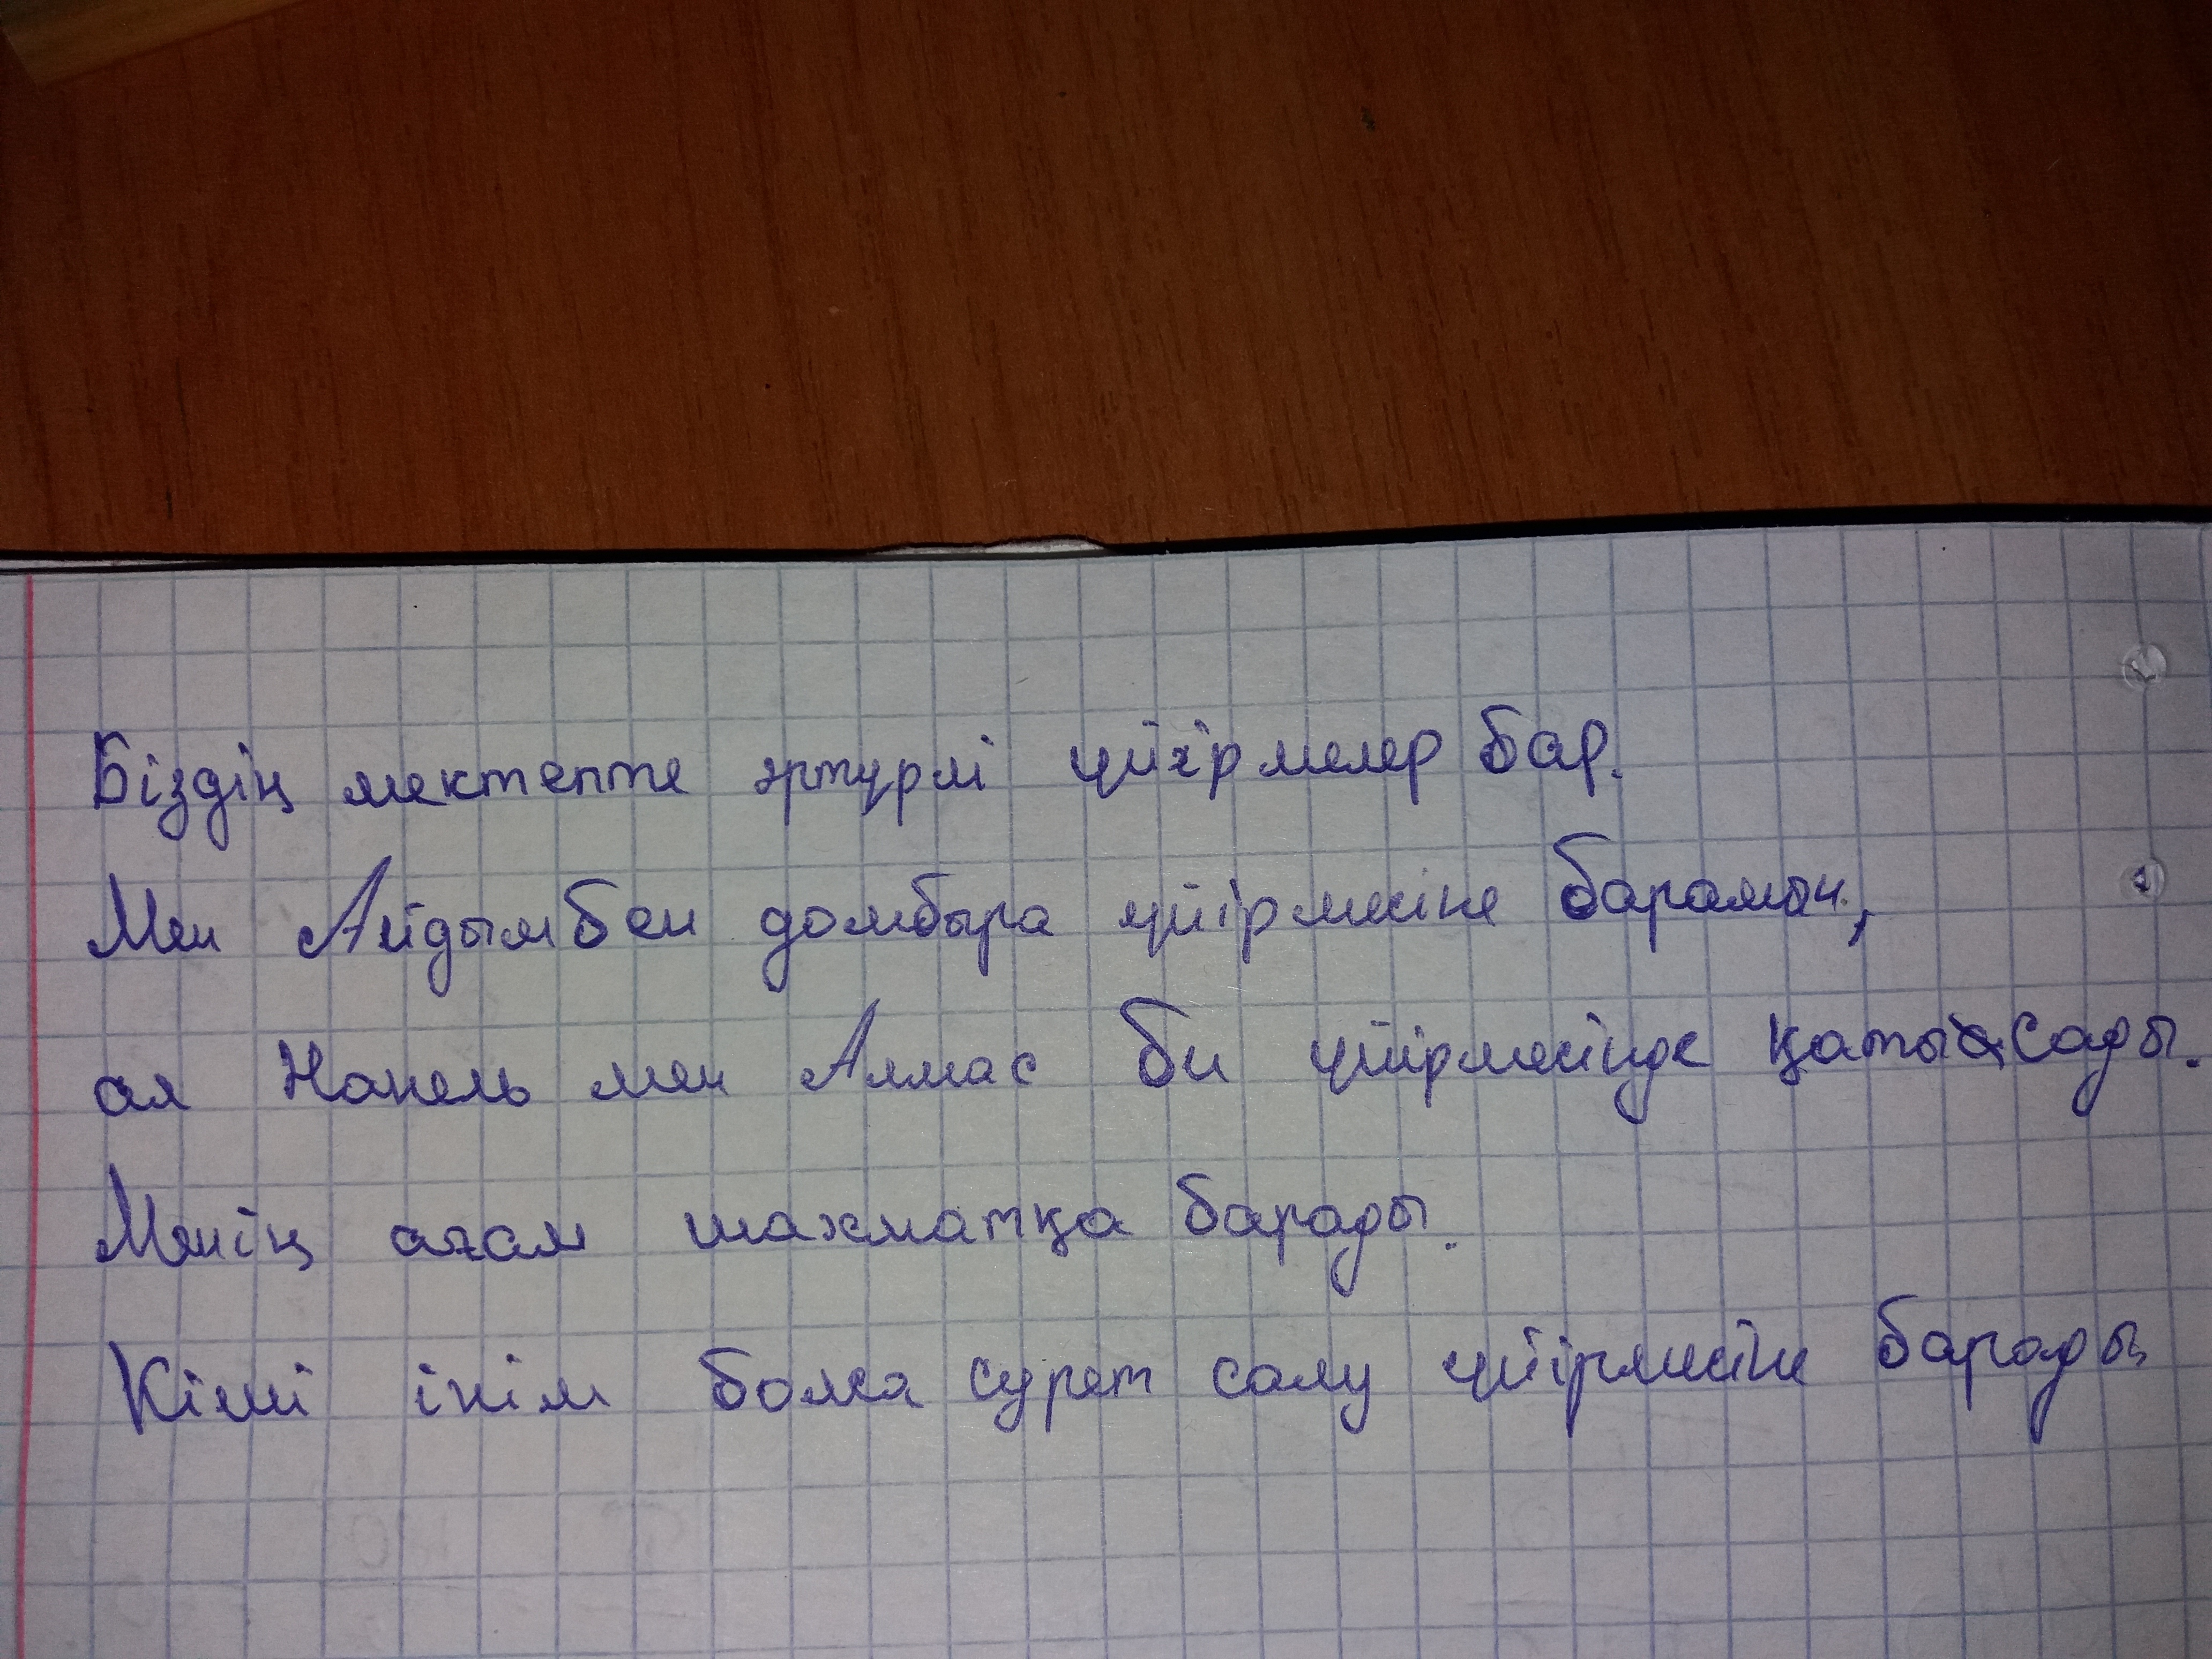 Біздің мектепте әртүрлі үйірмелер бар.
Мен Айдымбен домбыра үйірмесіне барамын,
ал Нанель мен Алмас би үйірмесінде қатысады.
Менің ағам шахматқа барады.
Кіші інім болса сурет салу үйірмесіне барады